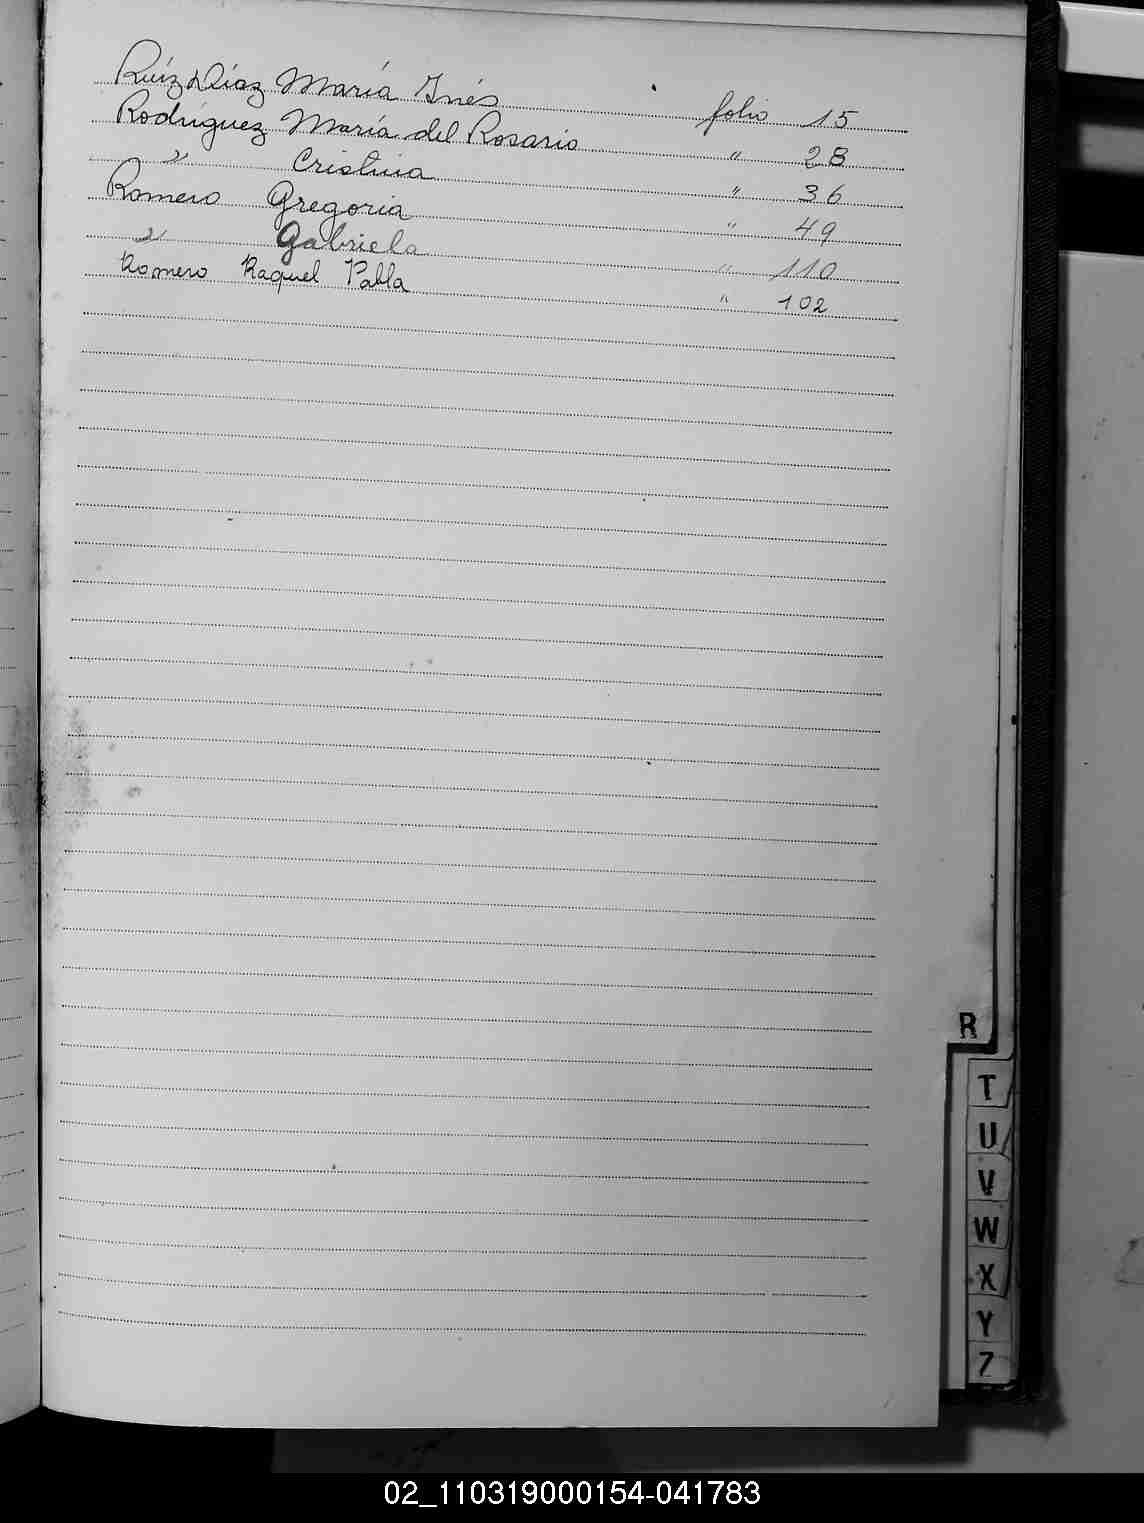 Ruíz Díaz María Inés folio 15
Rodríguez María del Rosario " 28
" Cristina " 36
Romero Gregoria " 49
" Gabriela " 110
Romero Raquel Pabla " 102
R
T
U
V
W
X
Y
Z
02_110319000154-041783